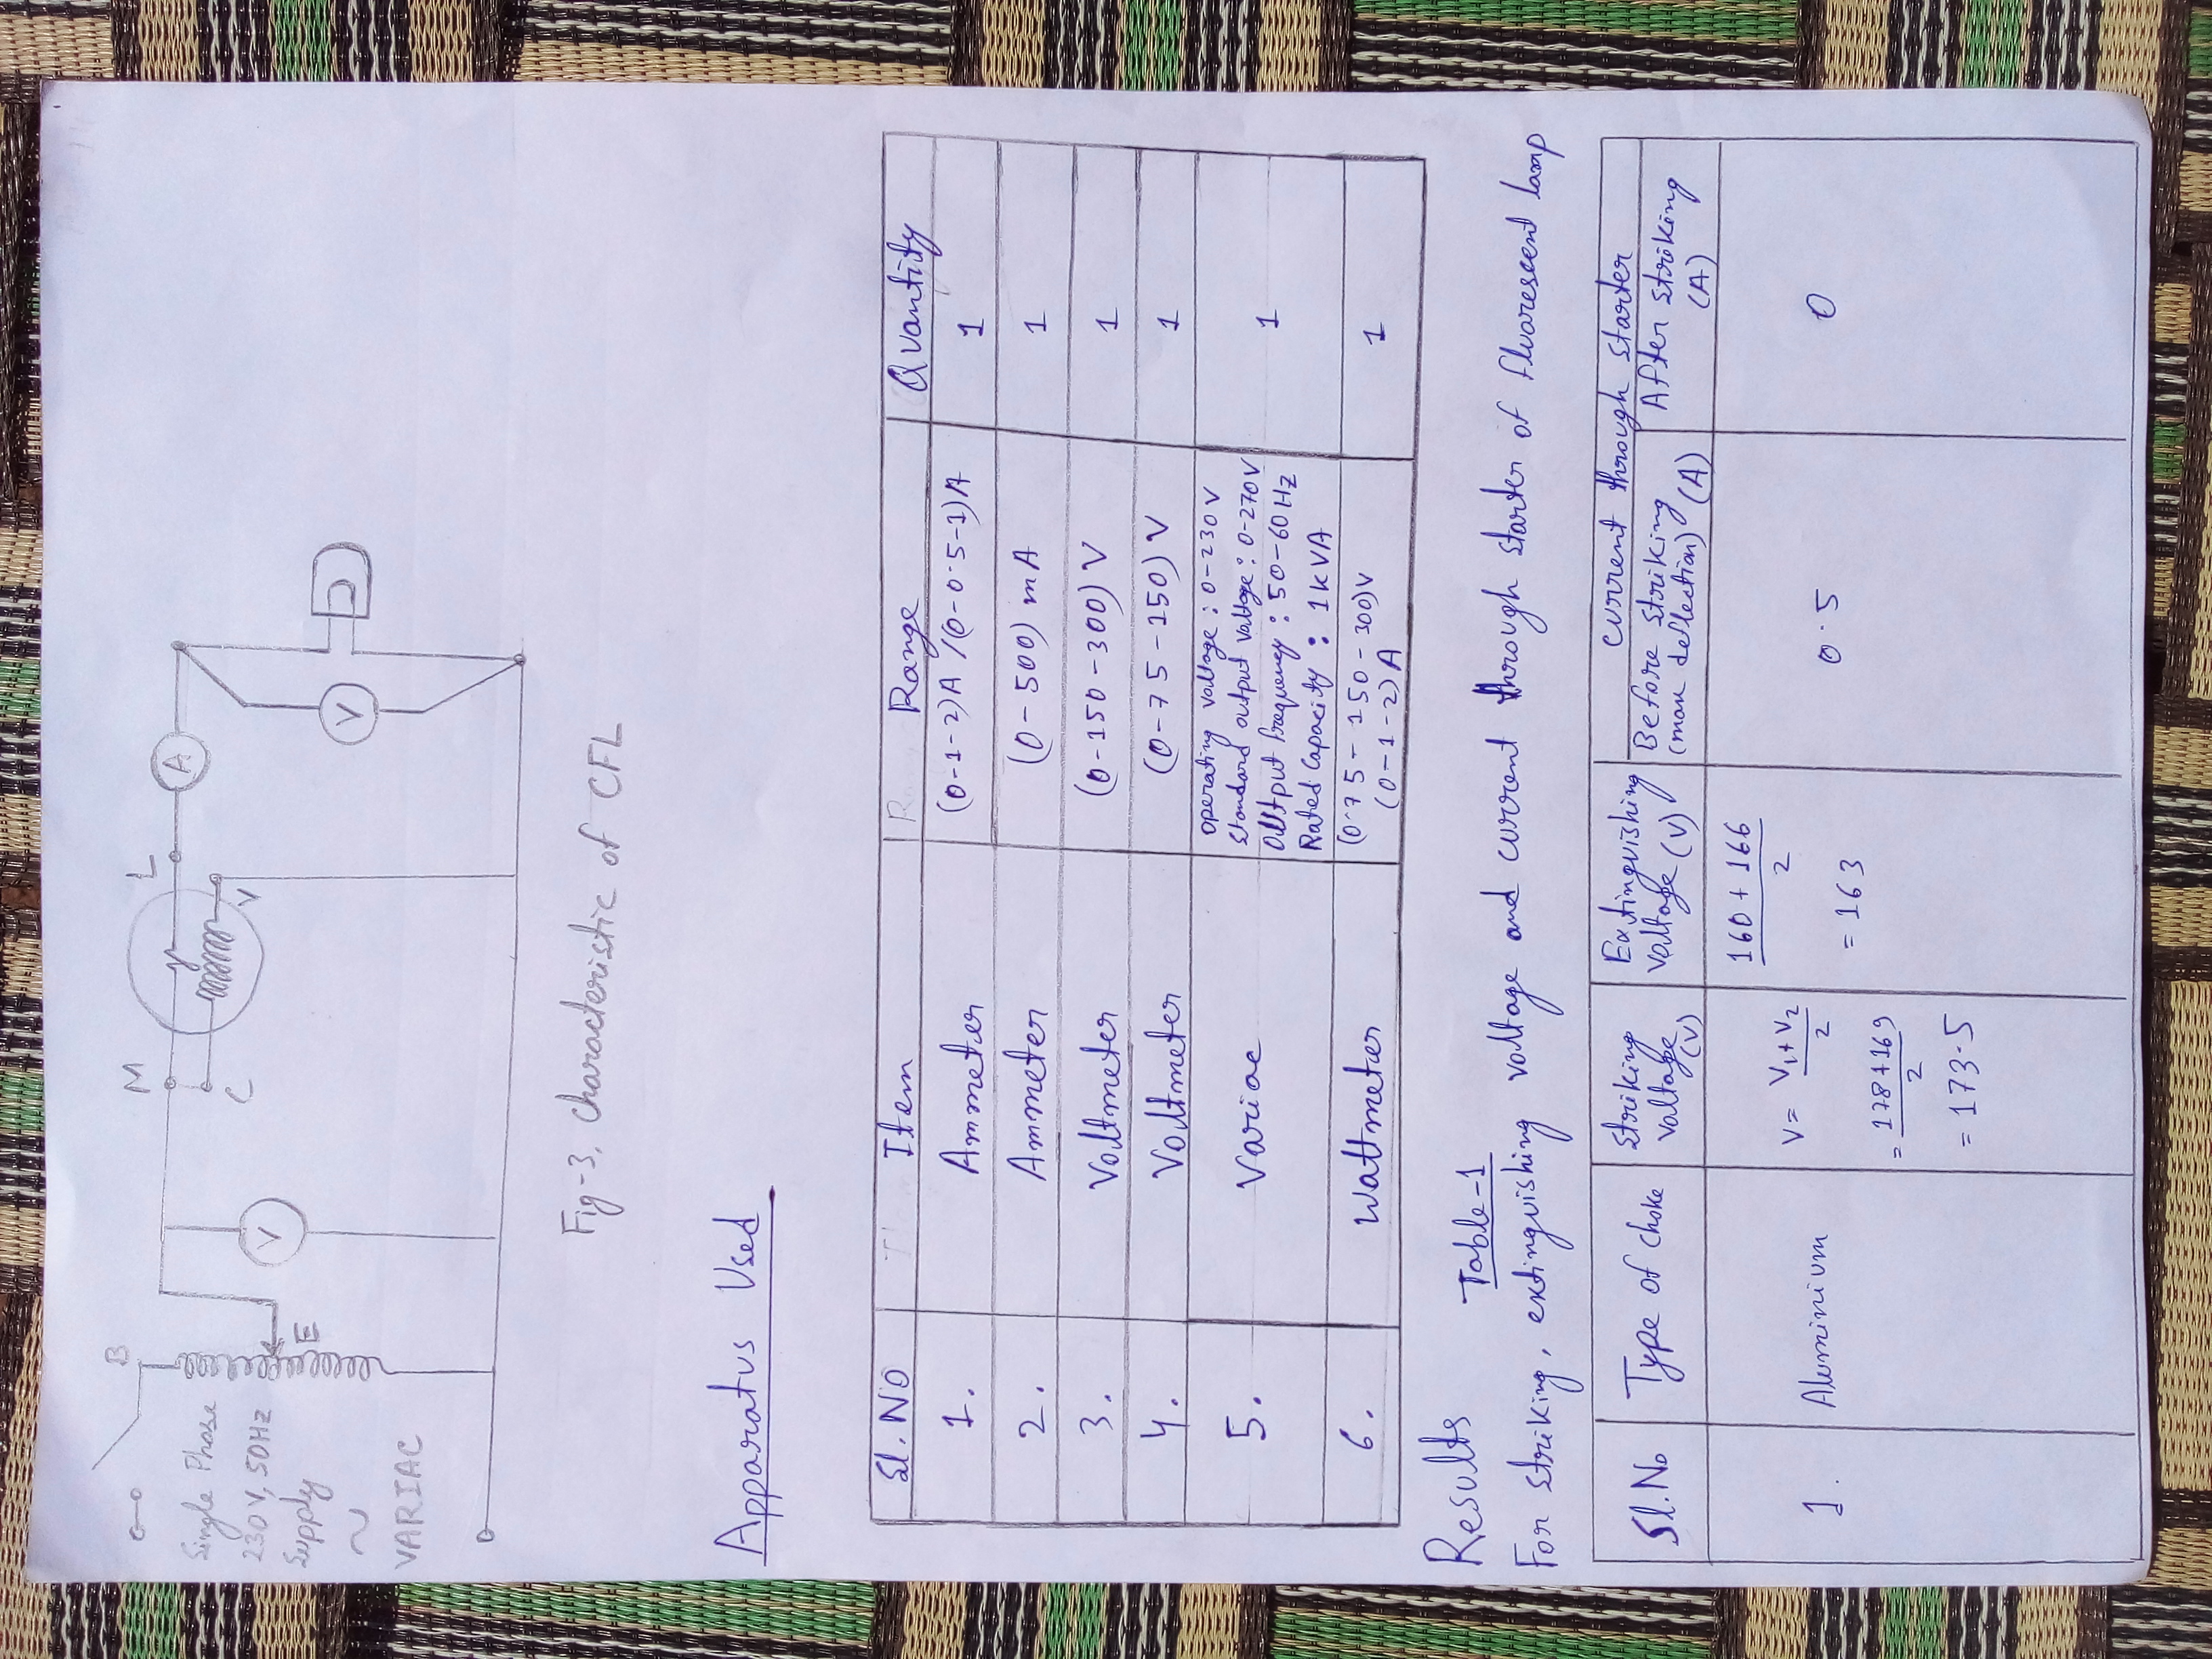 B
M
L
A
Single Phase
230V, 50Hz
Supply
~
VARIAC
E
V
C
V
V
Fig-3, Characteristic of CFL
Apparatus Used
Sl. NO Item Range Quantity
1. Ammeter (0-1-2)A /(0-0.5-1)A 1
2. Ammeter (0-500) mA 1
3. Voltmeter (0-150-300) V 1
4. Voltmeter (0-75-150) V 1
5. Variac operating voltage : 0-230 V 1
Standard output voltage : 0-270V
Output frequency : 50-60 Hz
Rated Capacity : 1kVA
6. Wattmeter (0-75-150-300)V 1
(0-1-2) A
Results
Table-1
For striking, extinguishing voltage and current through starter of fluorescent lamp
Sl.No Type of choke Striking voltage (V) Extinguishing voltage (V) current through starter
Before striking (max deflection) (A) After striking (A)
1. Aluminium V = V₁+V₂ / 2 160 + 166 / 2 0.5 0
= 163
= 178+169 / 2
= 173.5